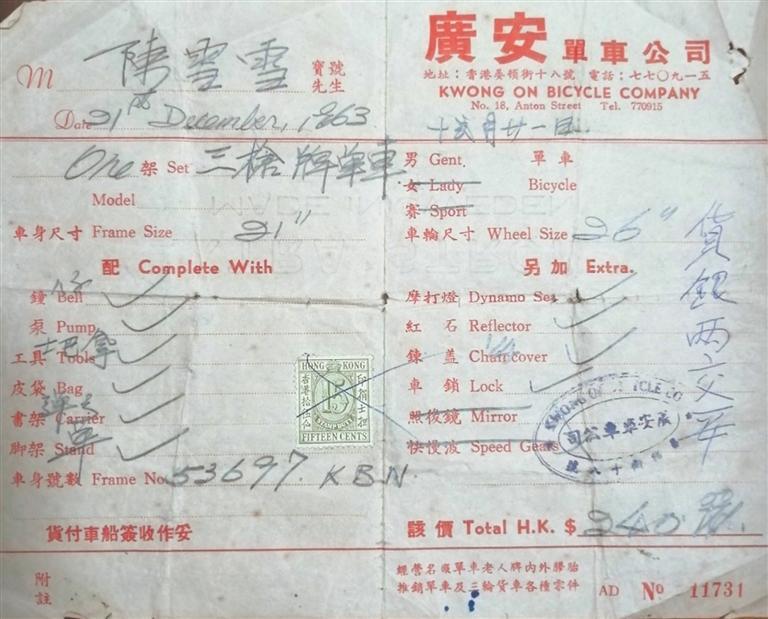 廣安單車公司
地址：香港晏頓街十八號 電話：七七〇九一五
KWONG ON BICYCLE COMPANY
No. 18, Anton Street Tel. 770915
M 陳雪雪 寶號 先生
Date 21st December, 1963
十弍月廿一日
One 架 Set 三槍牌單車
男 Gent. 單車
女 Lady Bicycle
賽 Sport
Model
車身尺寸 Frame Size 21"
車輪尺寸 Wheel Size 26"
配 Complete With
另加 Extra.
鐘 Bell
泵 Pump
工具 Tools
皮袋 Bag
書架 Carrier
脚架 Stand
摩打燈 Dynamo Set
紅石 Reflector
鍊蓋 Chain cover
車鎖 Lock
照後鏡 Mirror
快慢波 Speed Gears
貨銀両交
HONG KONG
STAMP DUTY
15
FIFTEEN CENTS
KWONG ON BICYCLE CO
廣安單車公司
車身號數 Frame No. 53697. KBN
貨付車船簽收作妥
該價 Total H.K. $ 240
附註
經營名廠單車老人牌內外膠胎
推銷單車及三輪貨車各種零件
AD No 11731